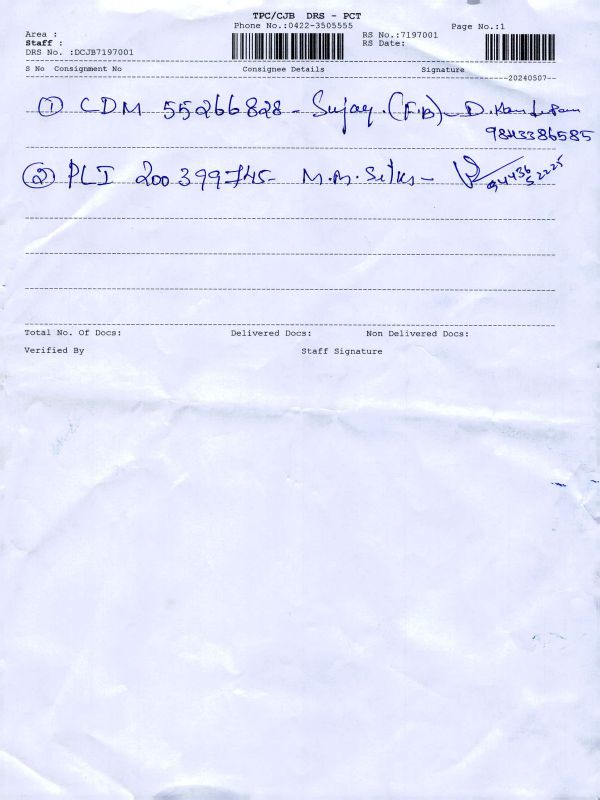 TPC/CJB DRS - PCT
Phone No.:0422-3505555
Page No.:1
Area :
RS No.:7197001
Staff :
RS Date:
DRS No. :DCJB7197001
S No Consignment No Consignee Details Signature
20240507--
① CDM 55266828 - Sujay (F.B) - D.
9843386585
② PLI 200399745 - M.M. Silks -
94436 52225
Total No. Of Docs: Delivered Docs: Non Delivered Docs:
Verified By Staff Signature